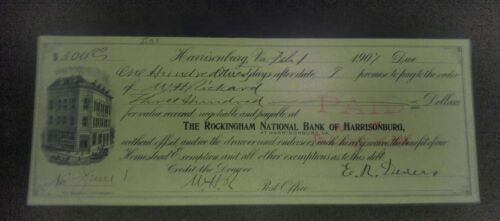 $300
Harrisonburg, Va. Feb 1 1907 Due
One Hundred days after date, I promise to pay to the order
of W H Richard
Three Hundred Dollars
PAID
for value received, negotiable and payable, at
THE ROCKINGHAM NATIONAL BANK OF HARRISONBURG,
AT HARRISONBURG, VA.
without offset, and the drawer and endorsers each hereby waive the benefit of our
Homestead Exemption and all other exemptions as to this debt.
Credit the Drawer
No. 1
Post Office